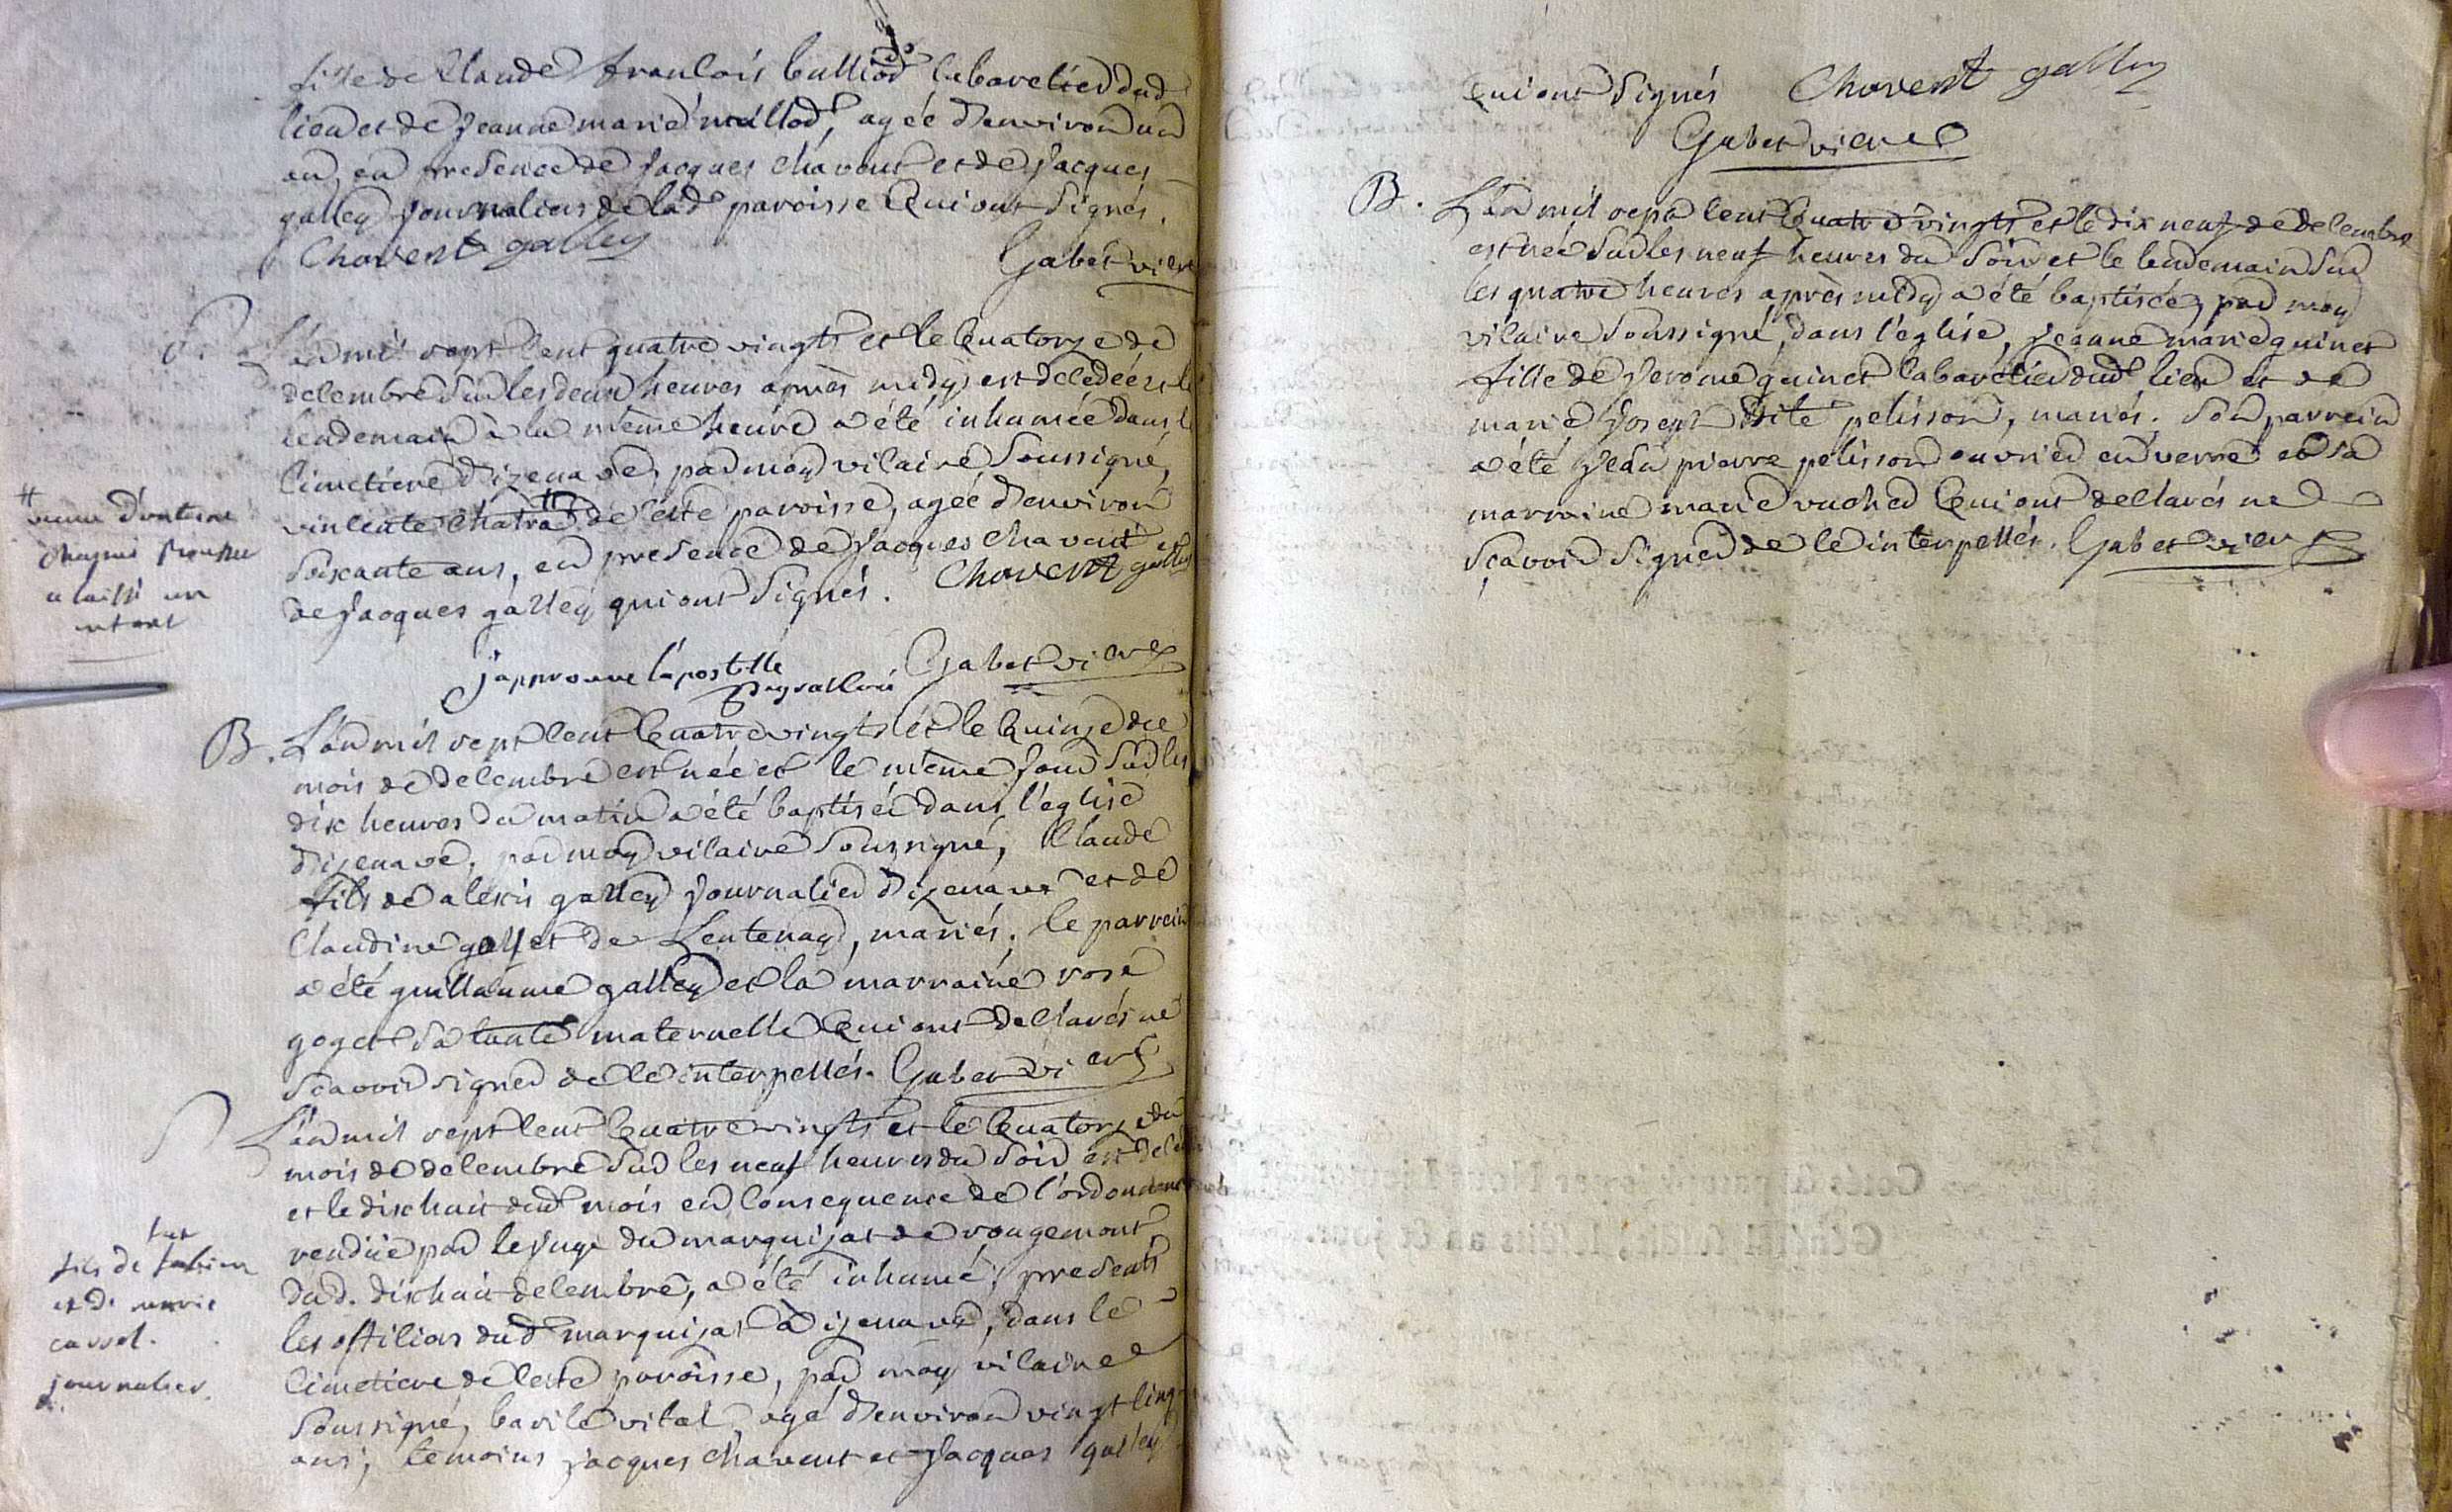 fille de Claude francois bulliod cabaretier dud
lieu et de Jeanne marie mallod, agée d'environ un
an, en presence de Jacques Chavent et de Jacques
galley journaliers de lad paroisse Qui ont signés.
Chavent galley
Gabet vicre
L'an mil sept cent quatre vingts et le Quatorze de
decembre sur les deux heures après midy est décédée et le
lendemain à la même heure a été inhumée dans le
cimetiere d'izenave, par moy vicaire soussigné,
vincente Chatra # de cette paroisse, agée d'environ
soixante ans, en presence de Jacques Chavent et
de Jacques galley qui ont signés. Chavent galley
# veuve d'antoine
a laissé un
enfant
J'approuve l'apostille
Gabet vicre
B. L'an mil sept cent Quatre vingts et le Quinze de
mois de decembre est née et le même jour sur les
dix heures du matin a été baptisé dans l'église
d'izenave, par moy vicaire soussigné, Claude
fils de alexis galley journalier d'izenave et de
Claudine goyet de Lentenay, mariés. le parrein
a été guillaume galley et la marraine rose
goyet sa tante maternelle Qui ont declarés ne
scavoir signer de ce interpellés. Gabet vicre
L'an mil sept cent Quatre vingts et le Quatorze du
mois de decembre sur les neuf heures du soir est décédé
et le dix huit dud mois en consequence de l'ordonnance
rendüe par le juge du marquisat de rougemont
dud. dix huit decembre, a été inhumé, presents
les officiers dud marquisat d'izenave, dans le
cimetiere de cette paroisse, par moy vicaire
soussigné, basile vital, agé d'environ vingt cinq
ans, temoins Jacques Chavent et Jacques galley
fils de fabien
et de marie
carrel.
journalier.
Qui ont signés Chavent galley
Gabet vicre
B. L'an mil sept cent Quatre vingts et le dix neuf de decembre
est née sur les neuf heures du soir et le lendemain sur
les quatre heures après midy a été baptisée, par moy
vicaire soussigné, dans l'église, Jeanne marie quinet
fille de Jerome quinet cabaretier dud lieu et de
marie Joseph dite pelisson, mariés. Son parrein
a été Jean pierre pelisson ouvrier en verre et sa
marraine marie vucher Qui ont declarés ne
scavoir signer de ce interpellés. Gabet vicre